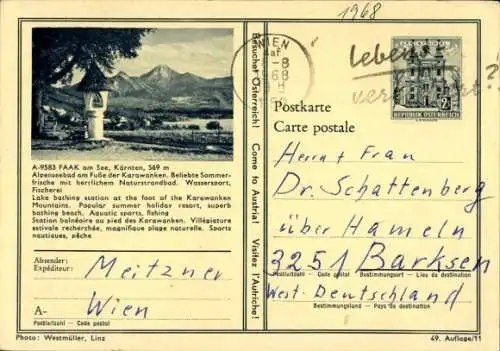 1968
WIEN
-8
68
Leben
ver
?
REPUBLIK ÖSTERREICH
Postkarte
Carte postale
Besuchet Österreich! Come to Austria! Visitez l'Autriche!
A-9583 FAAK am See, Kärnten, 569 m
Alpenseebad am Fuße der Karawanken. Beliebte Sommer-
frische mit herrlichem Naturstrandbad. Wassersport,
Fischerei
Lake bathing station at the foot of the Karawanken
Mountains. Popular summer holiday resort, superb
bathing beach. Aquatic sports, fishing
Station balnéaire au pied des Karawanken. Villégiature
estivale recherchée, magnifique plage naturelle. Sports
nautiques, pêche
Absender:
Expéditeur:
Meitzner
A-
Wien
Postleitzahl - Code postal
Herrn + Frau
Dr. Schattenberg
über Hameln
3251 Barksen
Postleitzahl - Code postal Bestimmungsort - Lieu de destination
West-Deutschland
Bestimmungsland - Pays de destination
Photo: Westmüller, Linz
49. Auflage/11